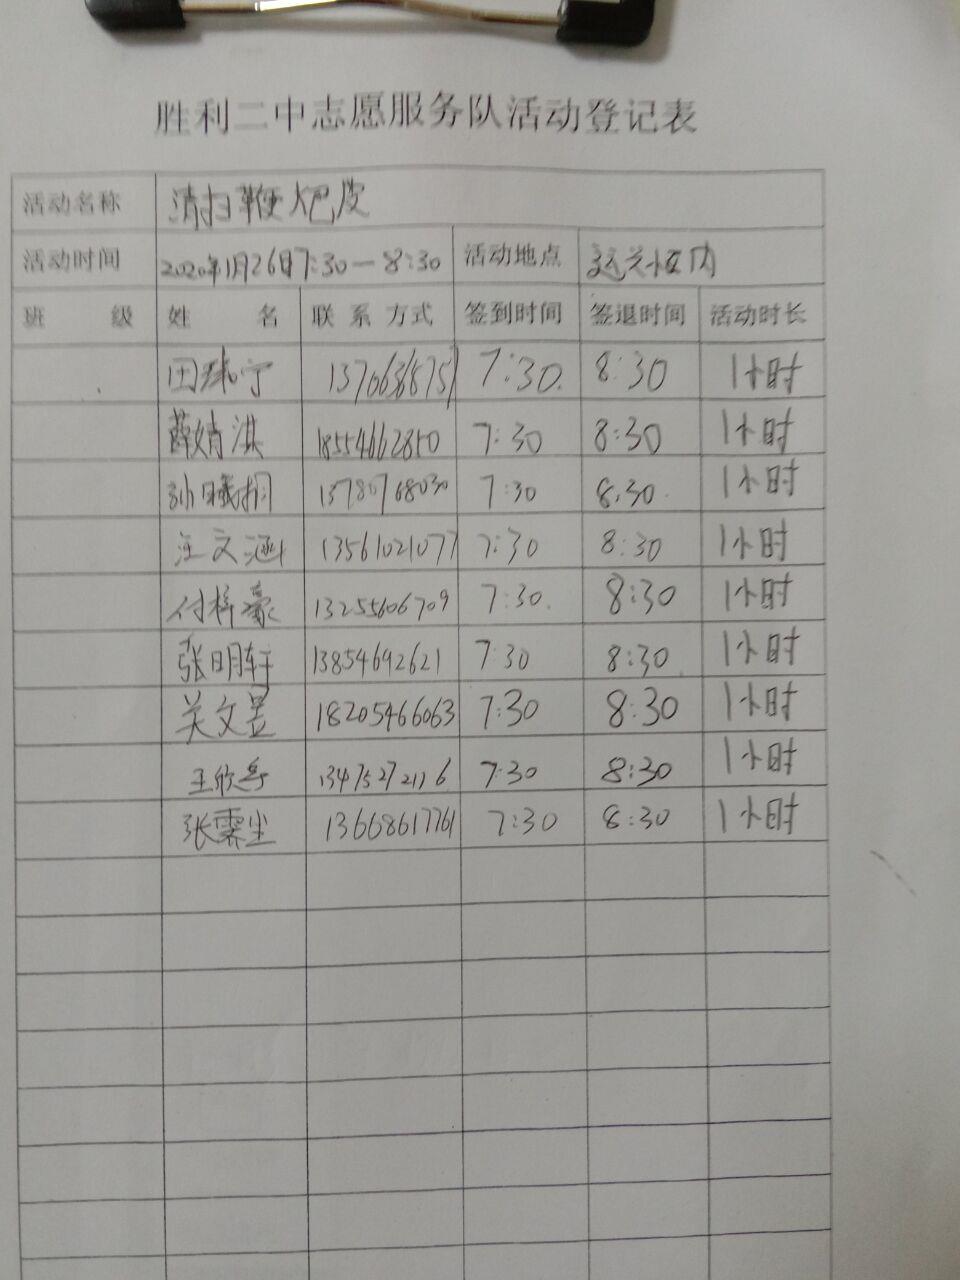 胜利二中志愿服务队活动登记表
活动名称 清扫鞭炮皮
活动时间 2020年1月26日7:30—8:30 活动地点 内
班 级 姓 名 联系方式 签到时间 签退时间 活动时长
田 宁 7:30. 8:30 1小时
薛婧淇 18554662850 7:30 8:30 1小时
孙曦桐 13780768030 7:30 8:30. 1小时
汪文涵 13561021077 7:30 8:30 1小时
付梓豪 13255606709 7:30. 8:30 1小时
张明轩 13854692621 7:30 8:30 1小时
吴文昱 18205466063 7:30 8:30 1小时
王欣 13475272116 7:30 8:30 1小时
张霁尘 13668617761 7:30 8:30 1小时